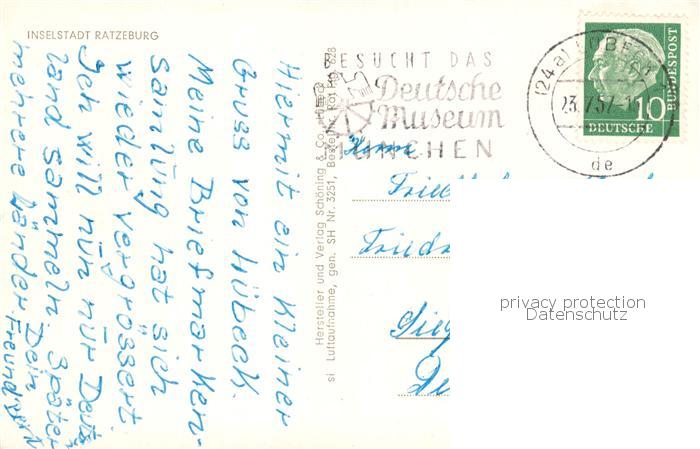 INSELSTADT RATZEBURG
Hiermit ein Kleiner
Gruss von Lübeck.
Meine Briefmarken-
samlung hat sich
wieder vergrössert
Ich will nun nur Deuts
land sammeln. Später
mehrere Länder. Dein
Freund
Hersteller und Verlag Schöning & Co., Lübeck
si Luftaufnahme, gen. SH Nr. 3251, Bestell-Nr. Rat Htg 628
BESUCHT DAS
Deutsche
Museum
MÜNCHEN
(24a) LÜBECK
23.7.57
de
DEUTSCHE
BUNDESPOST
10
Herrn
Fried
Friedr
Sieg
De
privacy protection
Datenschutz